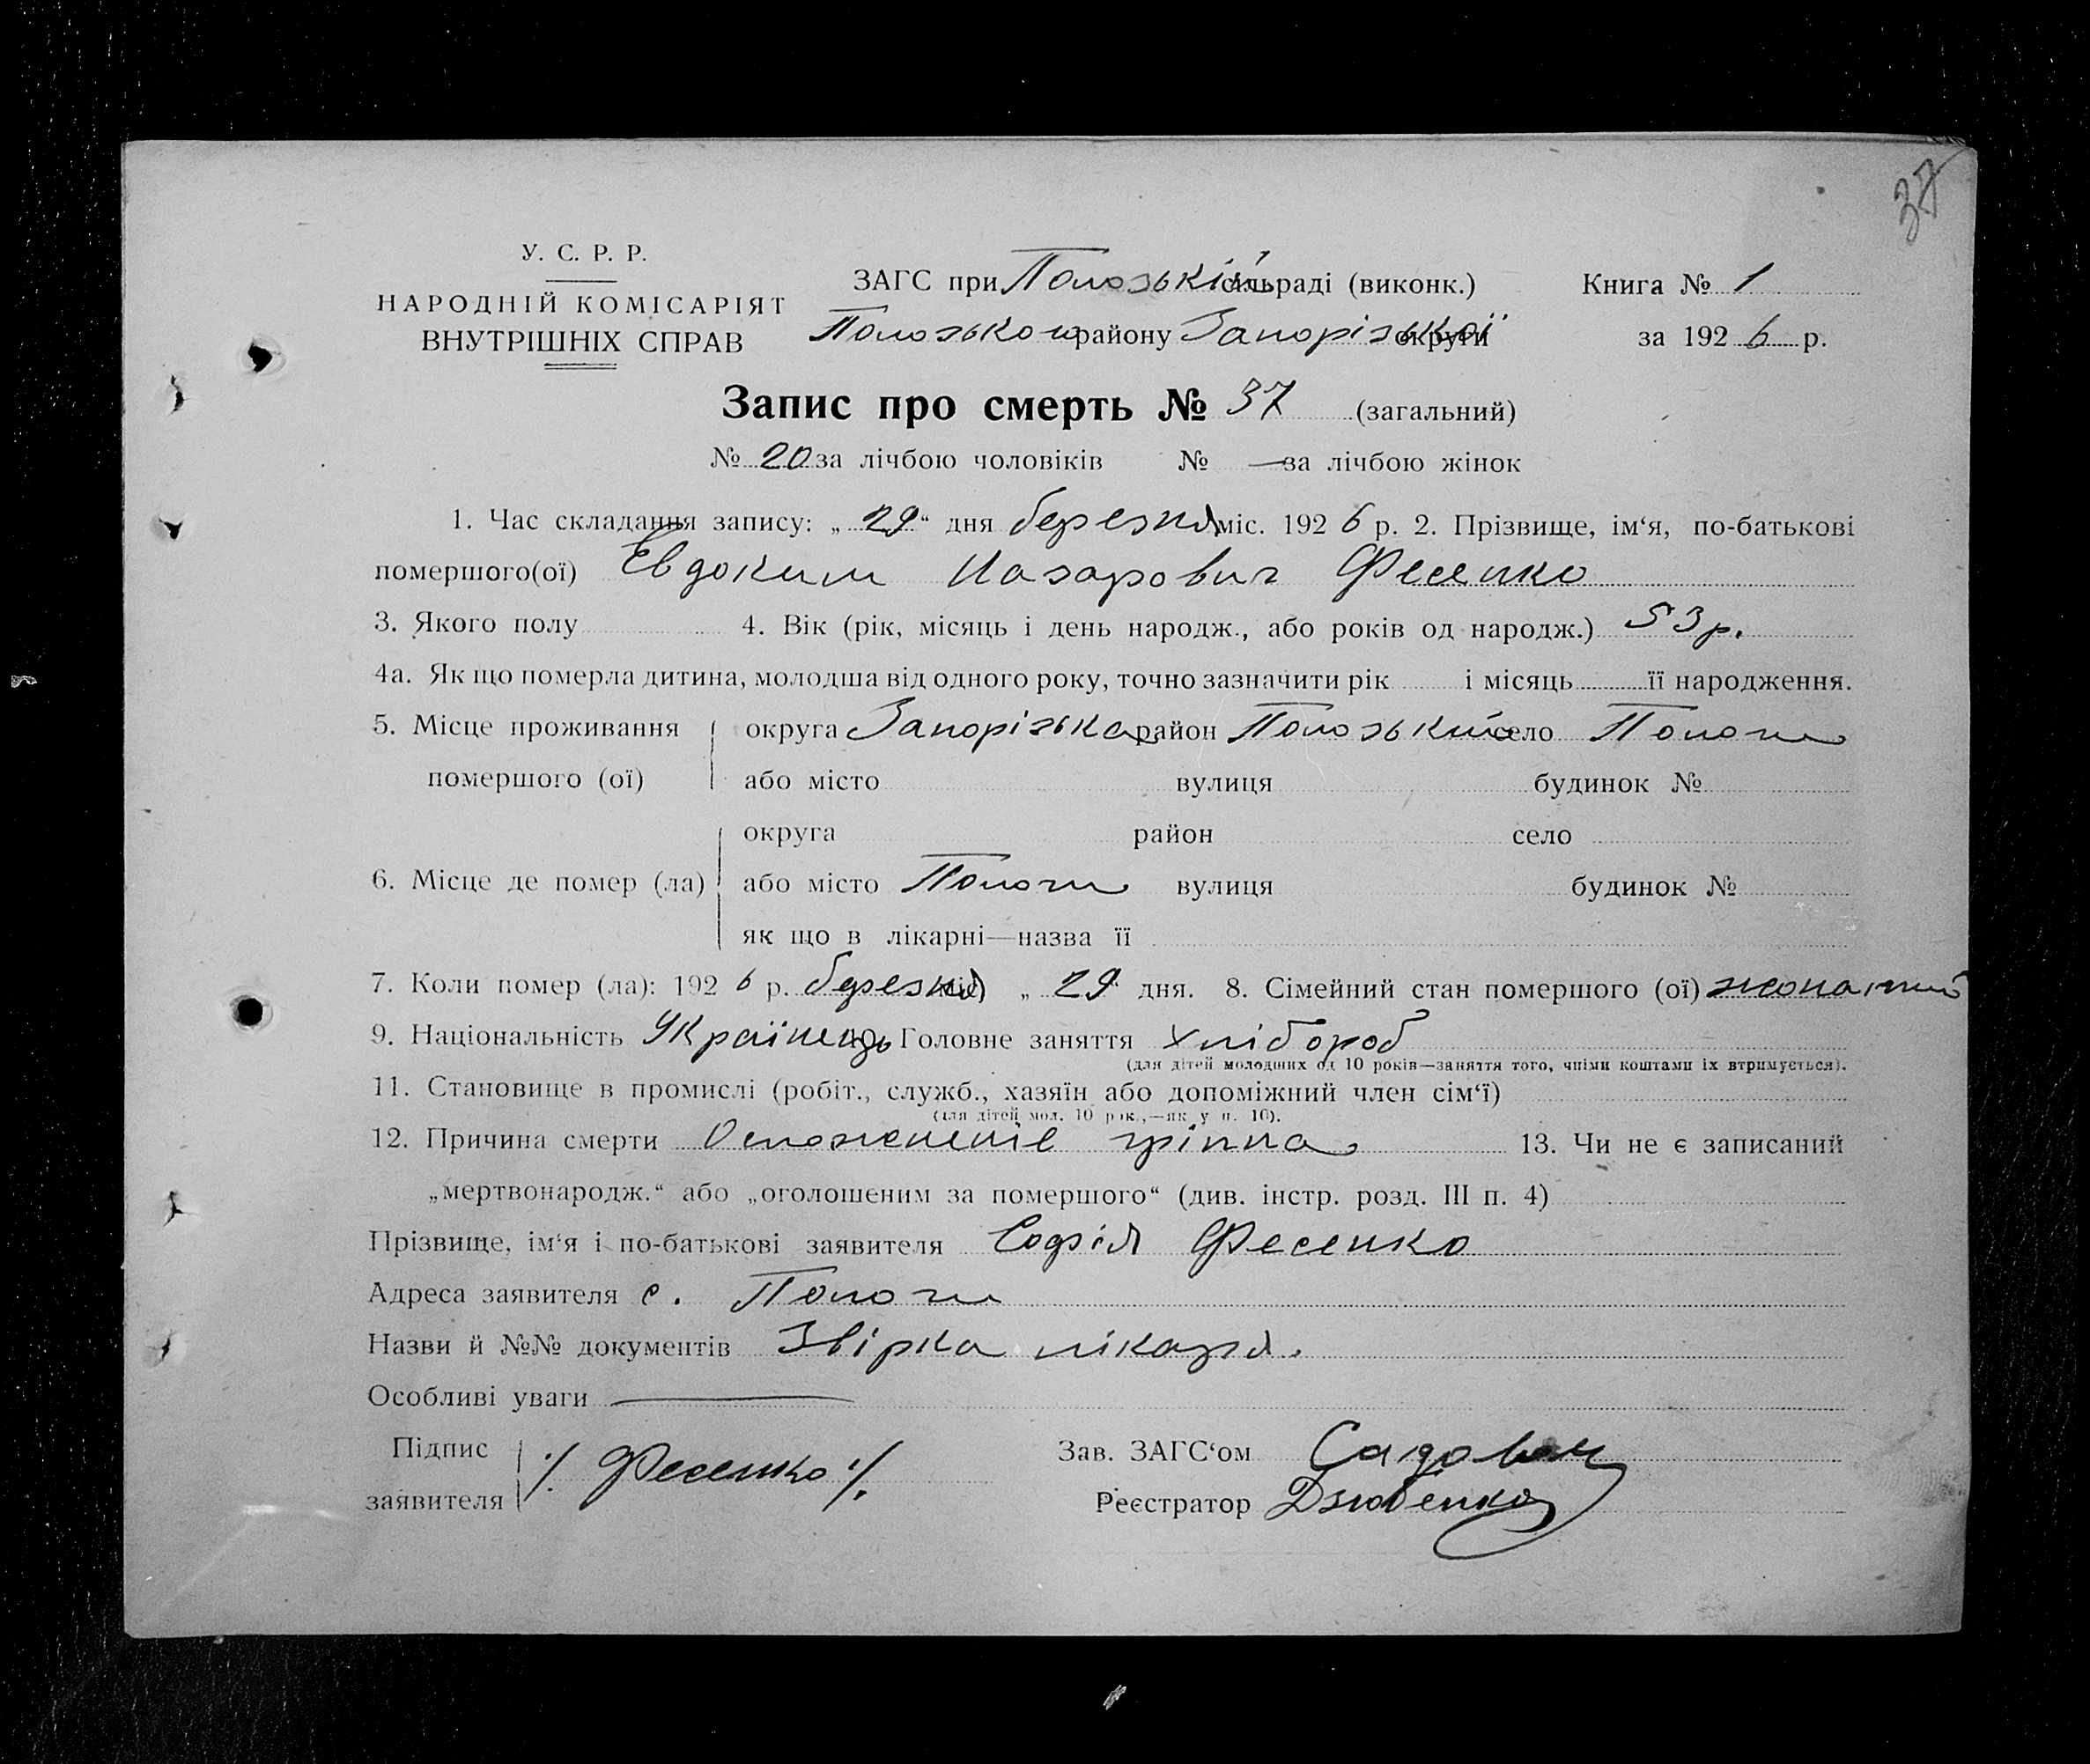 37
У. С. Р. Р.
НАРОДНІЙ КОМІСАРІЯТ
ВНУТРІШНІХ СПРАВ
ЗАГС при Полозькій сільраді (виконк.)
Полозького району Запорізької округи
Книга № 1
за 1926 р.
Запис про смерть № 37 (загальний)
№ 20 за лічбою чоловіків № — за лічбою жінок
1. Час складання запису: „29“ дня березня міс. 1926 р. 2. Прізвище, ім‘я, по-батькові
помершого(ої) Евдоким Назарович Фесенко
3. Якого полу 4. Вік (рік, місяць і день народж., або років од народж.) 53 р.
4а. Як що померла дитина, молодша від одного року, точно зазначити рік і місяць її народження.
5. Місце проживання округа Запорізька район Полозький село Пологи
помершого (ої) або місто вулиця будинок №
округа район село
6. Місце де помер (ла) або місто Пологи вулиця будинок №
як що в лікарні—назва її
7. Коли помер (ла): 1926 р. березня міс. „29“ дня. 8. Сімейний стан помершого (ої) жонатий
9. Національність Українець 10. Головне заняття Хлібороб
(для дітей молодших од 10 років—заняття того, чиїми коштами їх втримується).
11. Становище в промислі (робіт., служб., хазяїн або допоміжний член сім‘ї)
(для дітей мол. 10 рок.,—як у п. 10).
12. Причина смерти Осложененіе гріппа 13. Чи не є записаний
„мертвонародж.“ або „оголошеним за помершого“ (див. інстр. розд. III п. 4)
Прізвище, ім‘я і по-батькові заявителя Софія Фесенко
Адреса заявителя с. Пологи
Назви й №№ документів Звірка лікаря.
Особливі уваги —
Підпис
заявителя ·/. Фесенко ·/.
Зав. ЗАГС‘ом
Реєстратор Дзюбенко